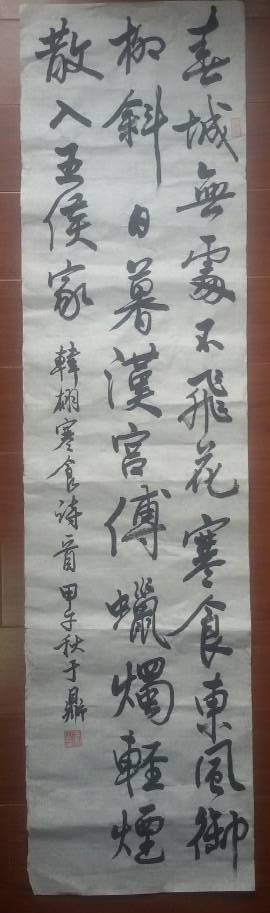 春城無處不飛花寒食東風御
柳斜日暮漢宮傳蠟燭輕煙
散入五侯家 韓翃寒食诗一首 甲午秋于鼎